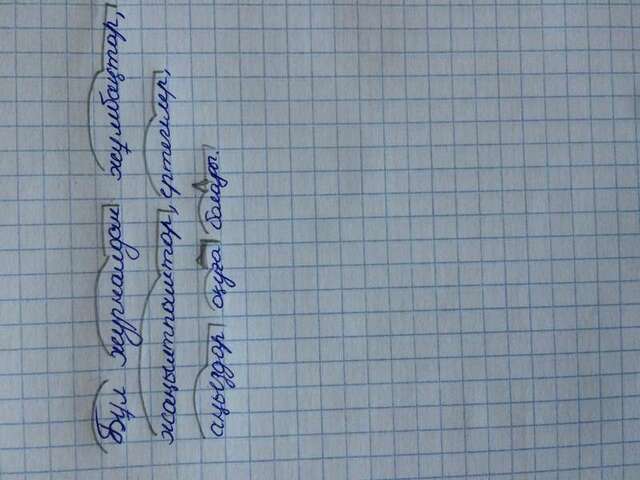 Бұл журналдан жұмбақтар,
жаңылтпаштар, ертегілер,
аңыздар оқуға болады.